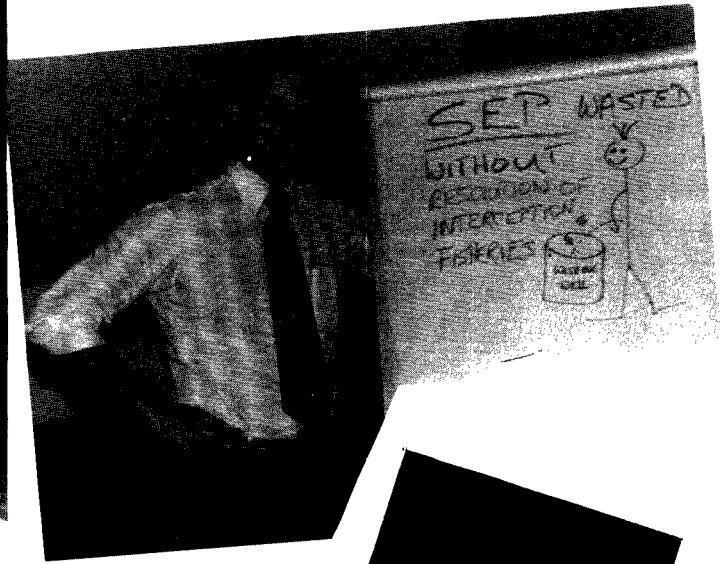 SEP WASTED
WITHOUT
RESOLUTION OF
INTERCEPTION
FISHERIES